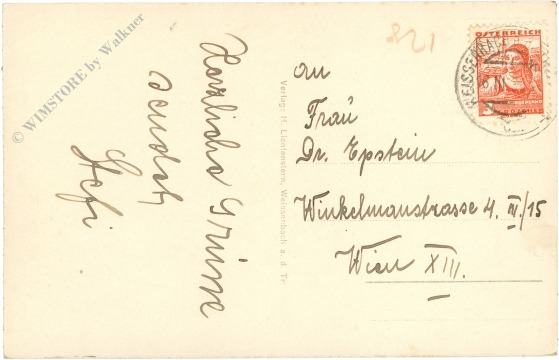 Herzliche Grüsse
sendet
Stefi
Verlag: H. Lichtenstern, Weissenbach a. d. Tr.
An
Frau
Dr. Epstein
Winkelmanstrasse 4. III/15
Wien XIII.
821
ÖSTERREICH
© WIMSTORE by Walkner